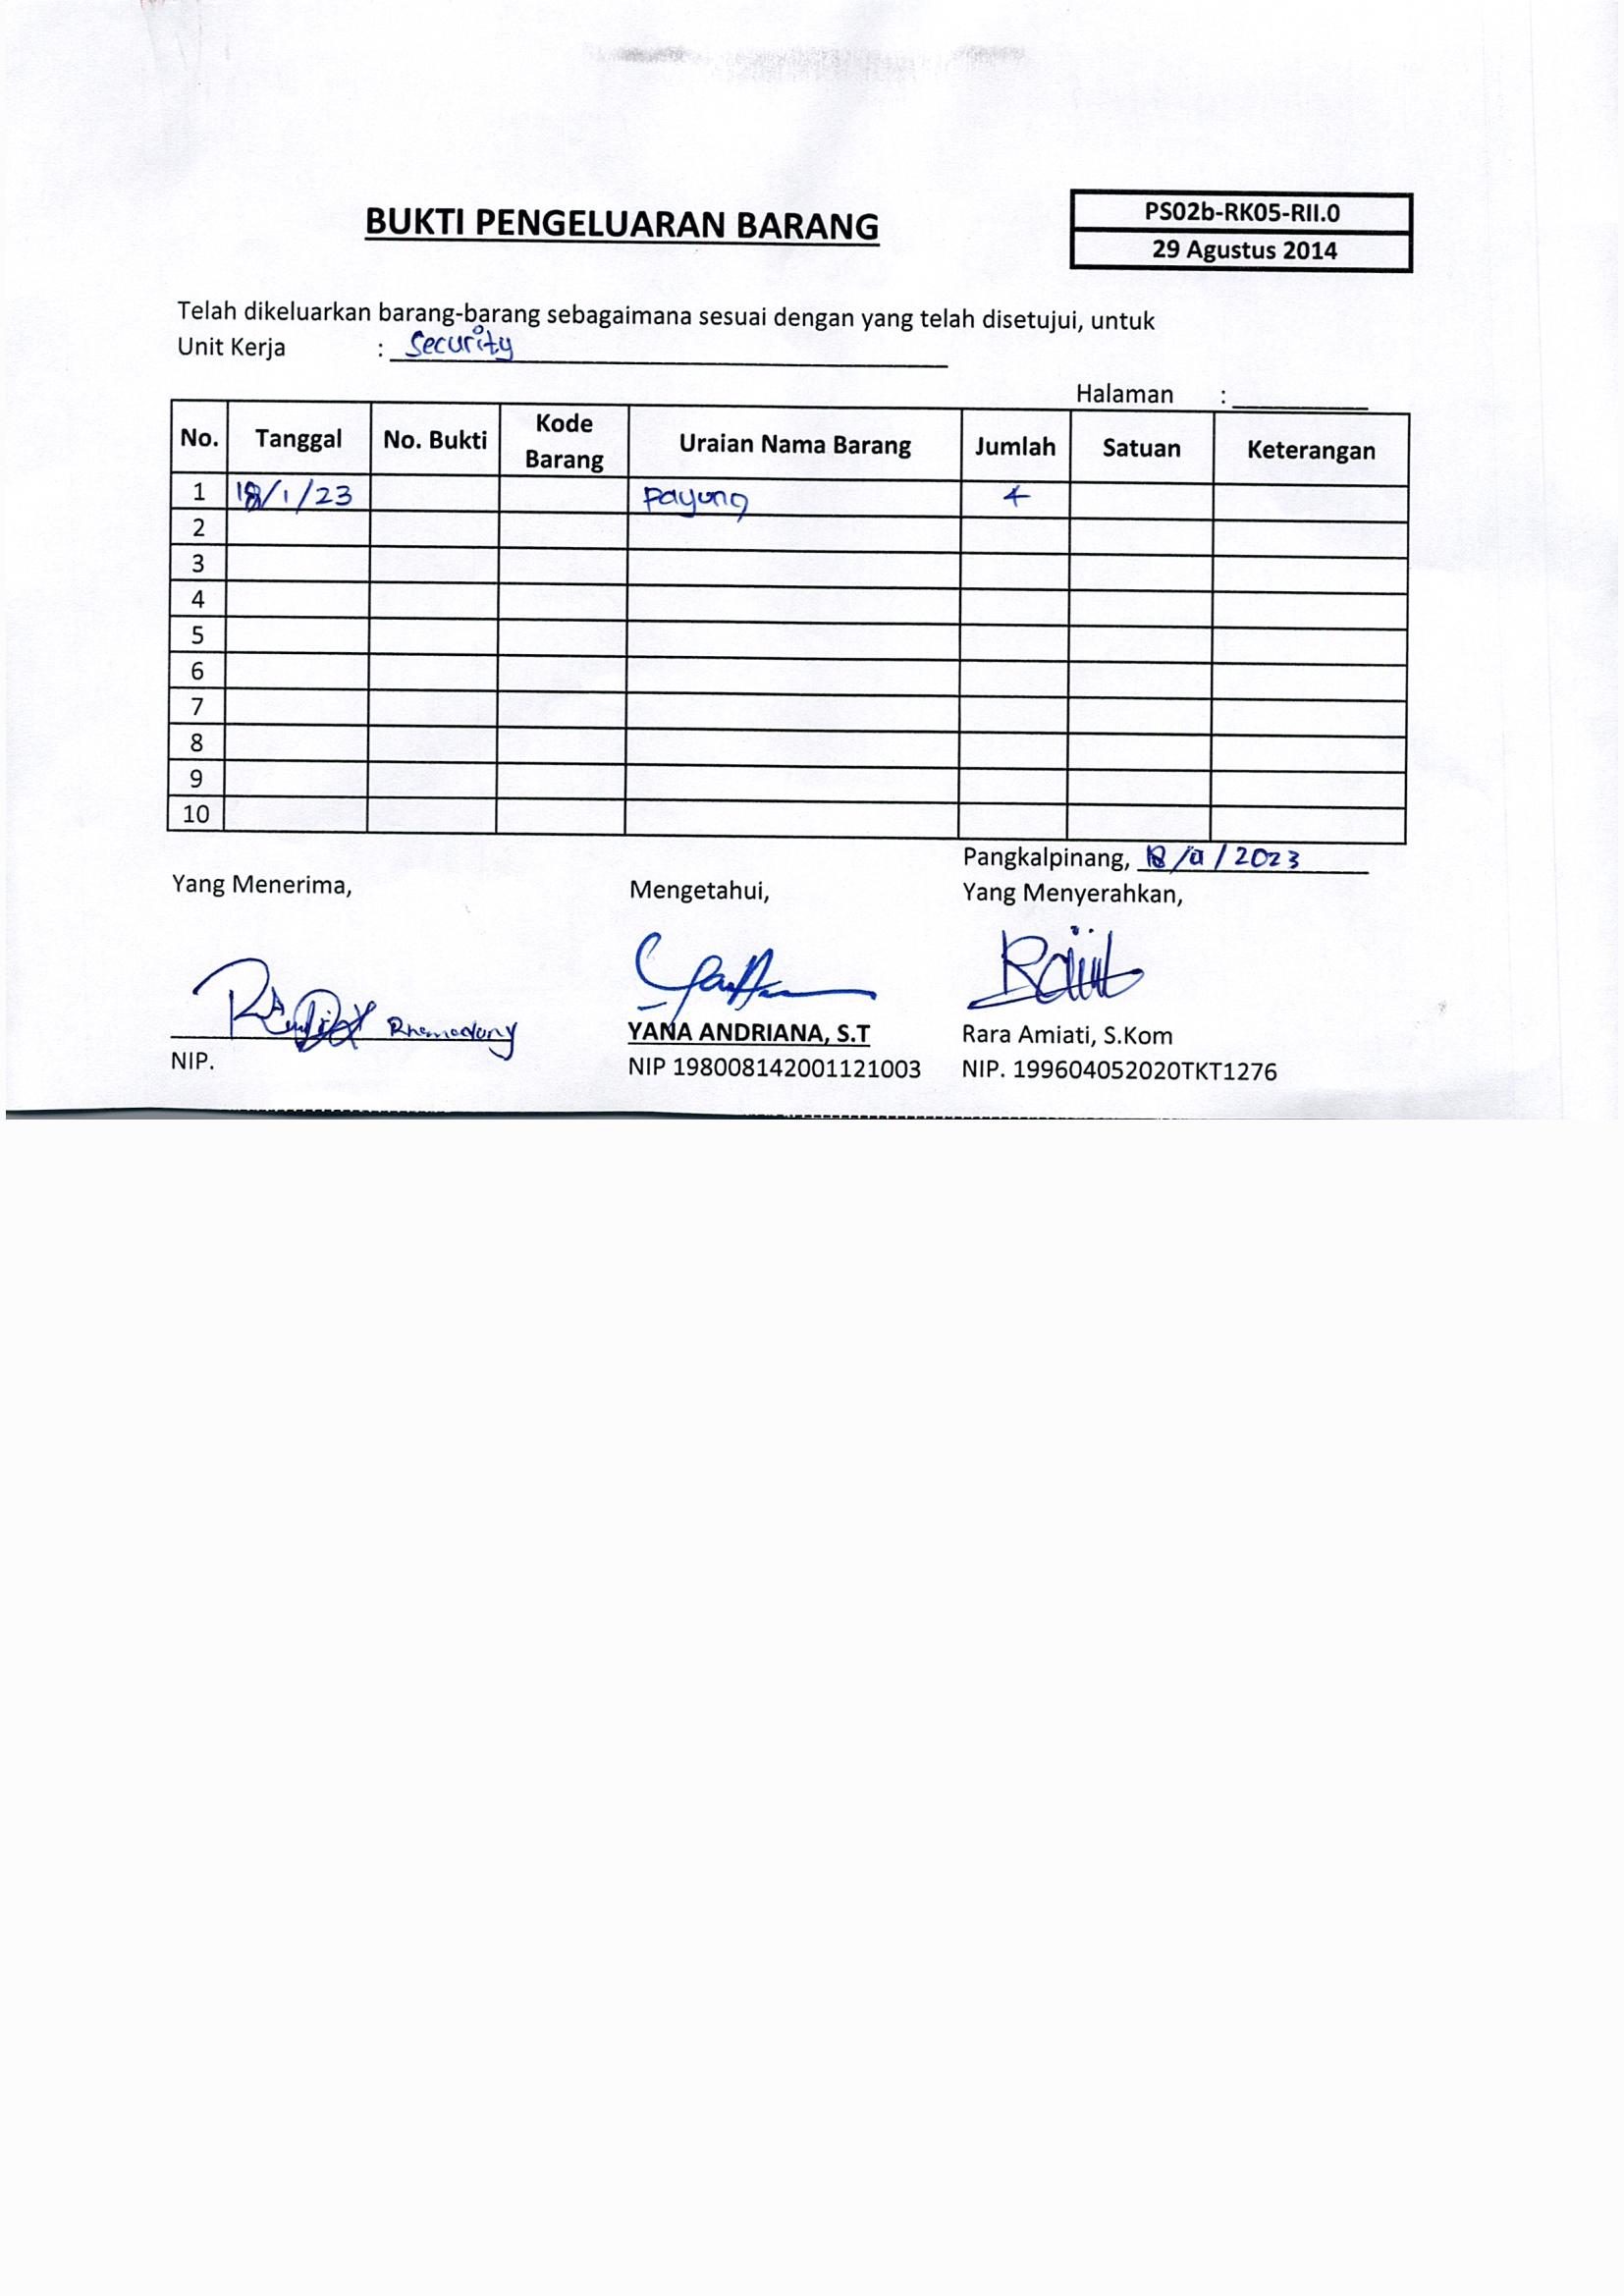 BUKTI PENGELUARAN BARANG
PS02b-RK05-RII.0
29 Agustus 2014
Telah dikeluarkan barang-barang sebagaimana sesuai dengan yang telah disetujui, untuk
Unit Kerja : Security
Halaman :
No. Tanggal No. Bukti Kode Barang Uraian Nama Barang Jumlah Satuan Keterangan
1 18/1/23 Payung 4
2
3
4
5
6
7
8
9
10
Pangkalpinang, 18 /01 / 2023
Yang Menerima, Mengetahui, Yang Menyerahkan,
YANA ANDRIANA, S.T Rara Amiati, S.Kom
NIP. NIP 198008142001121003 NIP. 199604052020TKT1276